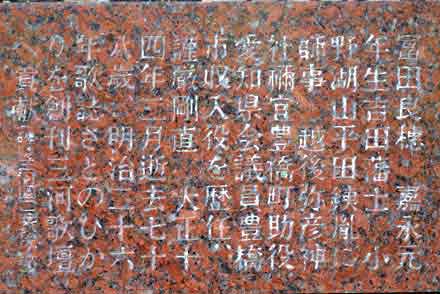 冨田良穂 嘉永元
年生吉田藩士 小
野湖山平田銕胤に
師事 越後弥彦神
社祢宜豊橋町助役
愛知県会議員豊橋
市収入役を歴任
謹厳剛直 大正十
四年三月逝去七十
八歳 明治二十六
年歌誌さとのひか
りを創刊三河歌壇
へ貢献